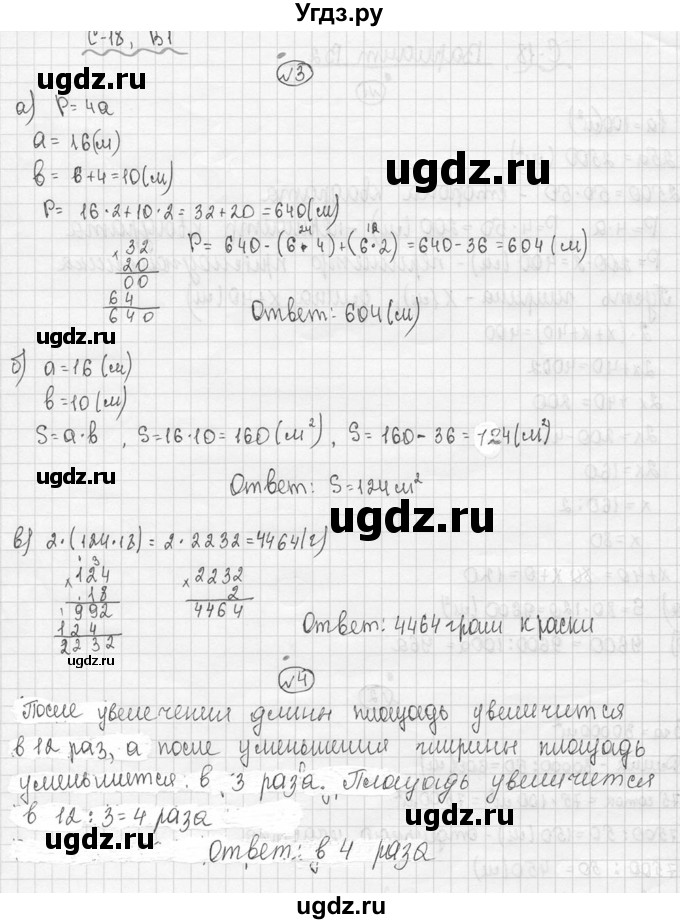 Угдз.ру
С-18, В1
№3
ugdz.ru
а) P = 4a
a = 16(м)
ugdz.ru
в = 6+4=10(м)
P = 16·2+10·2 = 32+20 = 640(м)
24 12
P = 640-(6·4)+(6·2)=640-36=604 (м)
× 32
20
00
64
640
Ответ: 604(м)
ugdz.ru
б) a=16 (м)
в=10(м)
S=a·в , S=16·10=160(м²), S=160-36=124(м²)
Ответ: S=124м²
ugdz.ru
в) 2·(124·18)=2·2232=4464(г)
1 3
× 124
18
1992
124
2232
× 2232
2
4464
ugdz.ru
Ответ: 4464грам краски
№4
После увеличения длины площадь увеличится
в 12 раз, а после уменьшения ширины площадь
уменьшится в 3 раза. Площадь увеличится
в 12:3=4 раза
ugdz.ru
ugdz.ru
Ответ: в 4 раза
ugdz.ru
ugdz.ru